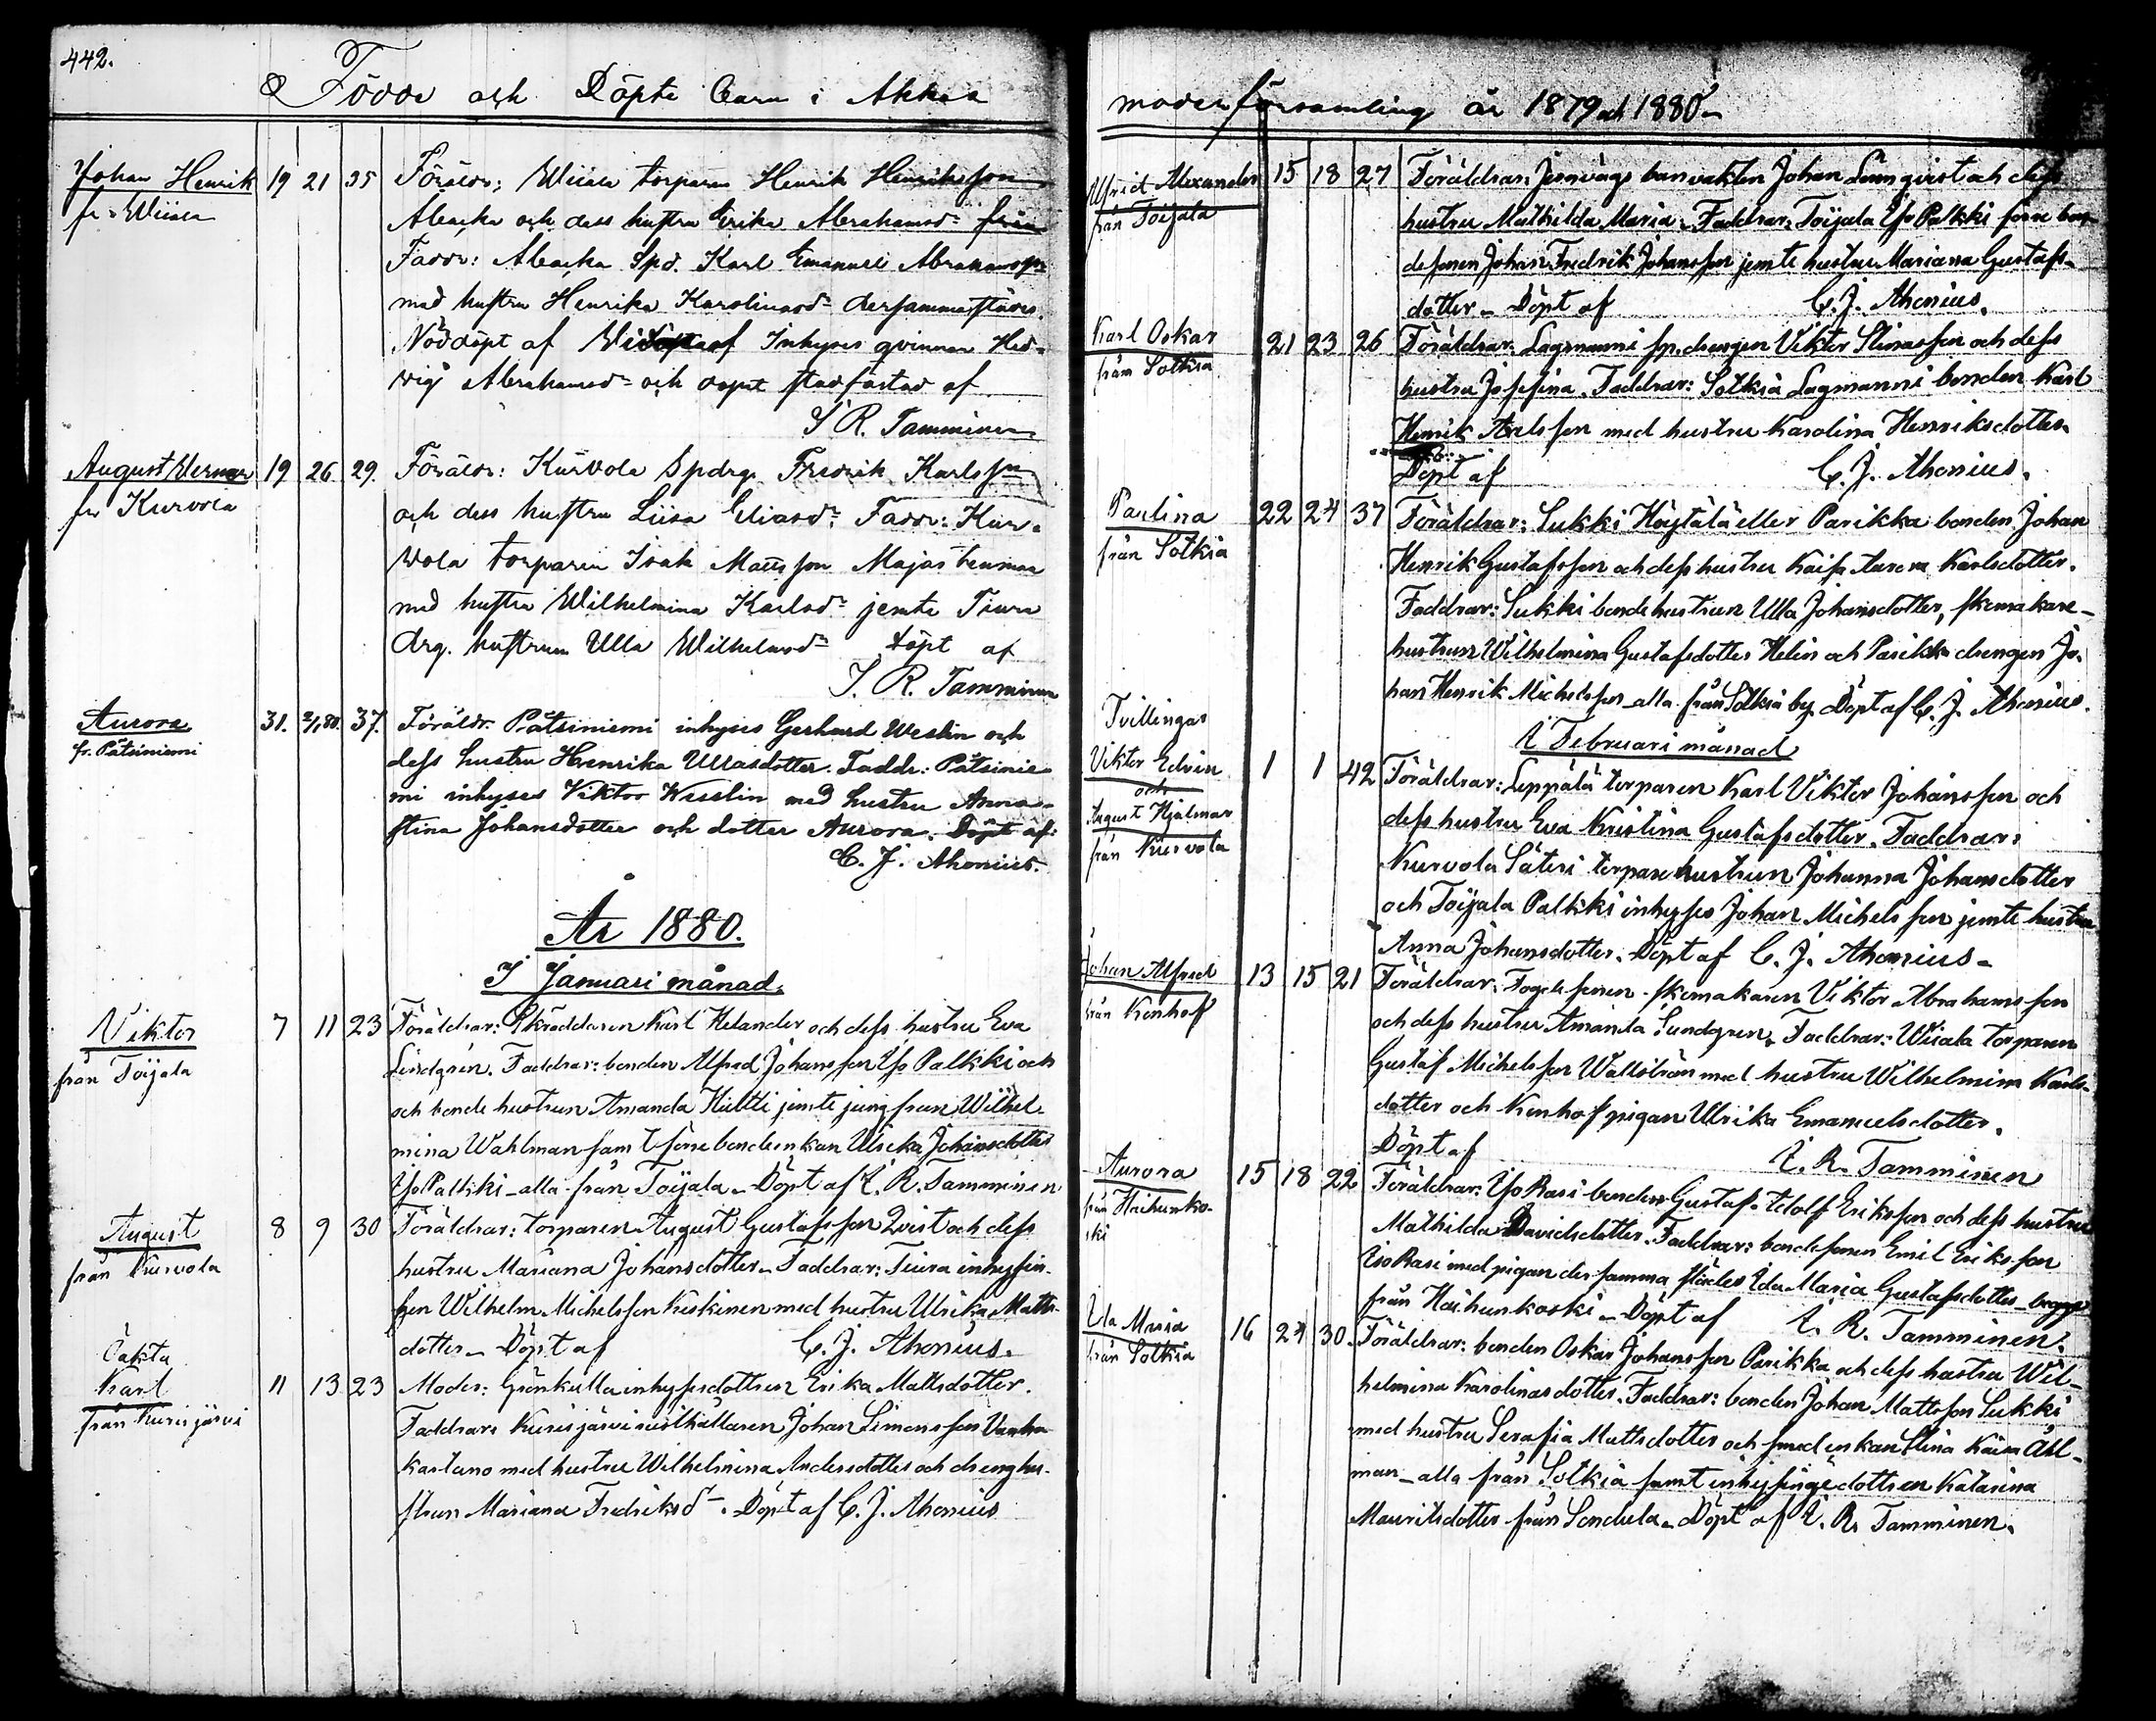 442.
Födde och Döpte Barn i Akkas
Johan Henrik 19 21 35 Föräldr: Wiiala torparen Henrik Henriksson
fr. Wiiala
och dess hustru Erika Abrahamsd:
Faddr: Spd. Karl Emanuel Abrahamsson
med hustru Henrika Karolinasd: dersammastädes.
Nöddöpt af Inhyses qvinnan Hed-
vig Abrahamsd: och dopet stadfästad af
I R. Tamminen
August Werner 19 26 29. Föräldr: Kurvola Spdrg. Fredrik Karlsson
fr. Kurvola
och dess hustru Liisa Eliasd: Faddr: Kur-
vola torparen Isak Mattsson Majasbenmaa
med hustru Wilhelmina Karlsd: jemte Tiura
drg. hustrun Ulla Wilhelmsd: döpt af
I. R. Tamminen
Aurora 31. 2/1,80. 37. Föräldr. Påtsiniemi inhyses Gerhard Weslin och
fr. Påtsiniemi
dess hustru Henrika Ullasdotter. Faddr: Påtsinie-
mi inhyses Viktor Wesslin med hustru Anna-
stina Johansdotter och dotter Aurora. Döpt af:
C. J. Ahonius.
År 1880.
I Januari månad.
Viktor 7 11 23 Föräldrar: Skräddaren Karl Helander och dess hustru Eva
från Toijala
Lindgrén. Faddrar: bonden Alfred Johansson Yso Palkki och
och bonde hustrun Amanda Hiltti jemte jungfrun Wilhel-
mina Wahlman samt förre bondeenkan Ulrika Johansdotter
Yso Palkki – alla från Toijala – Döpt af I. R. Tamminen
August 8 9 30 Föräldrar: torparen August Gustafsson Qvist och dess
från Kurvola
hustru Mariana Johansdotter – Faddrar: Tiura inhysin-
gen Wilhelm Michelsson Keskinen med hustru Ulrika Matts-
dotter – Döpt af C. J. Ahonius.
Oäkta
Karl 11 13 23 Moder: Grönkulla inhysesdottren Erika Mattsdotter.
från Kurisjärvi
Faddrar: Kurisjärvi rusthållaren Johan Simonsson Vanha-
kartano med hustru Wilhelmina Andersdotter och drenghu-
strun Mariana Fredriksd:– Döpt af C. J. Ahonius
moderförsamling år 1879 och 1880 –
Alfrid Alexander 15 18 27 Föräldrar: Jernvägs banvakten Johan Lönnqvist och dess
från Toijala
hustru Mathilda Maria – Faddrar: Toijala Yso Palkki förre bon-
desonen Johan Fredrik Johansson jemte hustru Mariana Gustafs-
dotter – Döpt af C. J. Ahonius.
Karl Oskar 21 23 26 Föräldrar: Lagmanni sp. drengen Viktor Stinasson och dess
från Sotkia
hustru Josefina. Faddrar: Sotkia Lagmanni bonden Karl
Henrik Axelsson med hustru Karolina Henriksdotter.
Döpt af C. J. Ahonius.
Paulina 22 24 37 Föräldrar: Sukki Höytälä eller Parikka bonden Johan
från Sotkia
Henrik Gustafsson och dess hustru Kaisa Aurora Karlsdotter.
Faddrar: Sukki bonde hustrun Ulla Johansdotter, skomakare-
hustrun Wilhelmina Gustafsdotter Helin och Parikka drengen Jo-
han Henrik Michelsson – alla från Sotkia by. Döpt af C. J. Ahonius.
I Februari månad
Tvillingar
Viktor Edvin 1 1 42 Föräldrar: Leppälä torparen Karl Viktor Johansson och
och
August Hjalmar
från Kurvola
dess hustru Eva Kristina Gustafsdotter. Faddrar:
Kurvola Säteri torpare hustrun Johanna Johansdotter
och Toijala Palkki inhyses Johan Michelsson jemte hustru
Anna Johansdotter. Döpt af C. J. Ahonius –
Johan Alfred 13 15 21 Föräldrar: skomakaren Viktor Abrahamsson
från Konhof
och dess hustru Amanda Sundgren. Faddrar: Wiiala torparen
Gustaf Michelsson Wallström med hustru Wilhelmina Karls-
dotter och Konhof pigan Ulrika Emanuelsdotter.
Döpt af I. R. Tamminen
Aurora 15 18 22 Föräldrar: Yso Rasi bonden Gustaf Adolf Eriksson och dess hustru
från Haihunko-
ski
Mathilda Davidsdotter. Faddrar: bondesonen Emil Eriksson
Iso Rasi med pigan dersamma städes Ida Maria Gustafsdotter – begge
från Haihunkoski – Döpt af I. R. Tamminen.
Ida Maria 16 24 30 Föräldrar: bonden Oskar Johansson Parikka och dess hustru Wil-
från Sotkia
helmina Karolinasdotter. Faddrar: bonden Johan Mattsson Sukki
med hustru Serafia Mattsdotter och smedenkan Stina Kaisa Åhl-
man – alla från Sotkia samt inhysingedottren Katarina
Mauritsdotter från Sondula – Döpt af I. R. Tamminen.